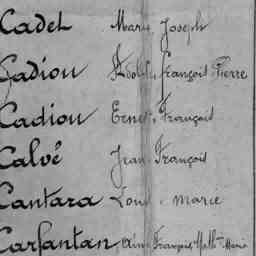 Cadet Marie Joseph
Cadiou Adolphe François Pierre
Cadiou Ernest François
Calvé Jean François
Cantara Louis Marie
Carfantan Aimé François Math. Marie